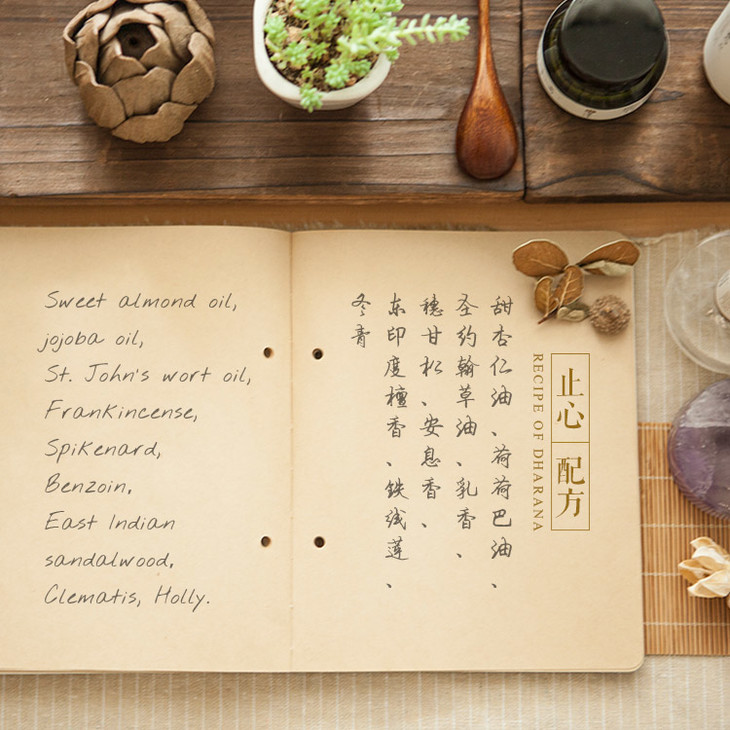 Sweet almond oil,
jojoba oil,
St. John's wort oil,
Frankincense,
Spikenard,
Benzoin,
East Indian
sandalwood,
Clematis, Holly.
止心 配方
RECIPE OF DHARANA
甜杏仁油、荷荷巴油、
圣约翰草油、乳香、
穗甘松、安息香、
东印度檀香、铁线莲、
冬青